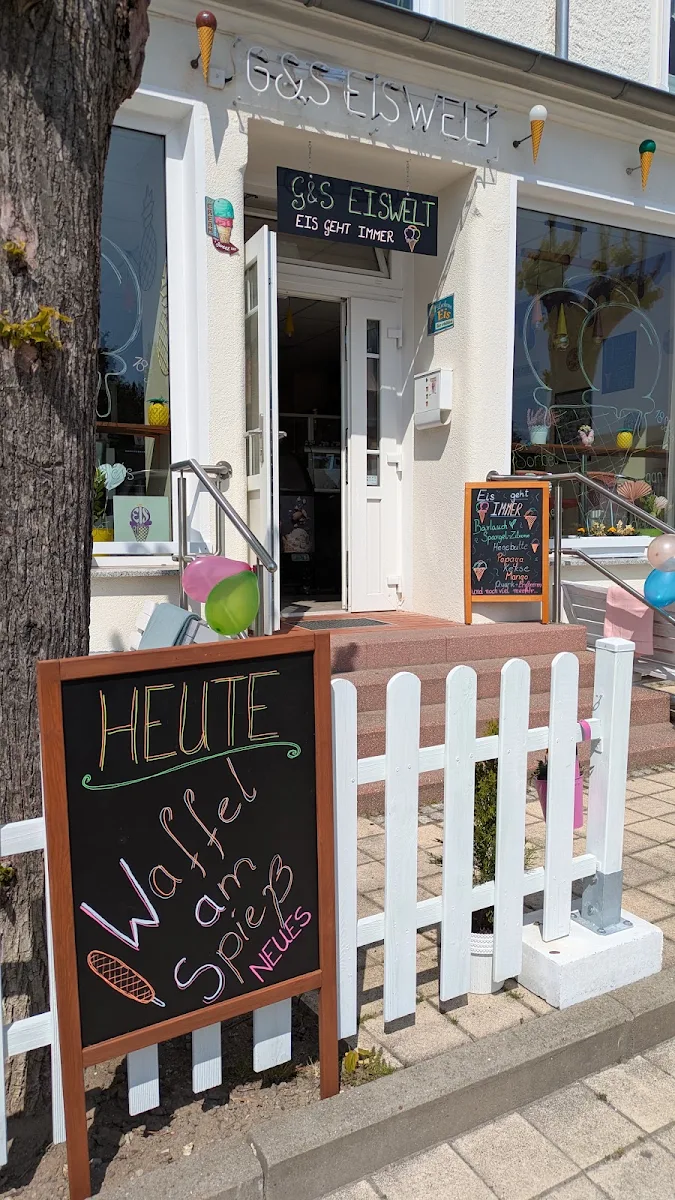 G&S EISWELT
G&S EISWELT
EIS GEHT IMMER
Eis
Eis geht
IMMER
Bärlauch
Spargel-Zitrone
Papaya
Kekse
Mango
und noch viel mehr
HEUTE
Waffel
am
Spieß
NEUES